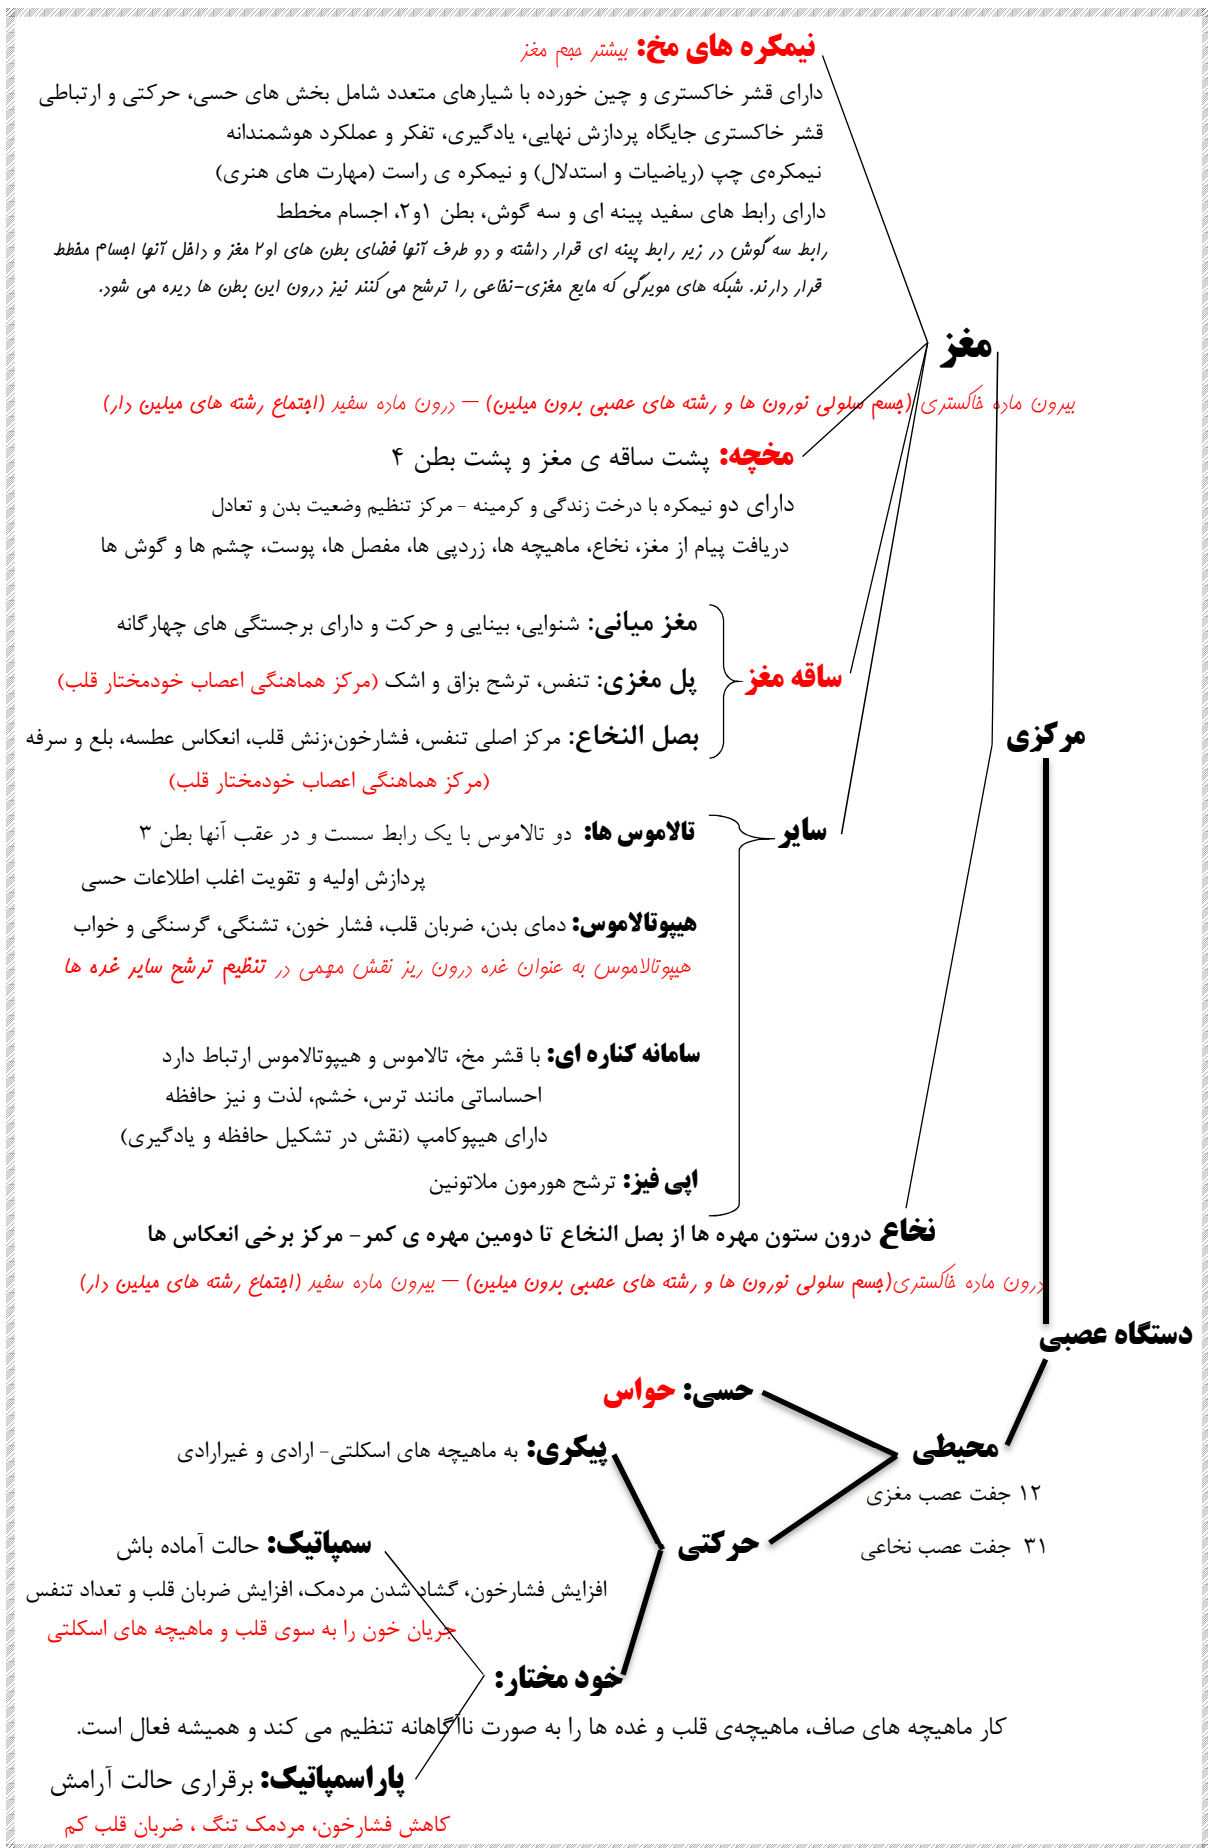 نیمکره های مخ: بیشتر حجم مغز
دارای قشر خاکستری و چین خورده با شیارهای متعدد شامل بخش های حسی، حرکتی و ارتباطی
قشر خاکستری جایگاه پردازش نهایی، یادگیری، تفکر و عملکرد هوشمندانه
نیمکره‌ی چپ (ریاضیات و استدلال) و نیمکره ی راست (مهارت های هنری)
دارای رابط های سفید پینه ای و سه گوش، بطن ۱و۲، اجسام مخطط
رابط سه گوش در زیر رابط پینه ای قرار داشته و دو طرف آنها فضای بطن های ۱و۲ مغز و داخل آنها اجسام مخطط
قرار دارند. شبکه های مویرگی که مایع مغزی-نخاعی را ترشح می کنند نیز درون این بطن ها دیده می شود.
مغز
بیرون ماده خاکستری (جسم سلولی نورون ها و رشته های عصبی بدون میلین) – درون ماده سفید (اجتماع رشته های میلین دار)
مخچه: پشت ساقه ی مغز و پشت بطن ۴
دارای دو نیمکره با درخت زندگی و کرمینه - مرکز تنظیم وضعیت بدن و تعادل
دریافت پیام از مغز، نخاع، ماهیچه ها، زردپی ها، مفصل ها، پوست، چشم ها و گوش ها
مغز میانی: شنوایی، بینایی و حرکت و دارای برجستگی های چهارگانه
ساقه مغز
پل مغزی: تنفس، ترشح بزاق و اشک (مرکز هماهنگی اعصاب خودمختار قلب)
مرکزی
بصل النخاع: مرکز اصلی تنفس، فشارخون،زنش قلب، انعکاس عطسه، بلع و سرفه
(مرکز هماهنگی اعصاب خودمختار قلب)
سایر
تالاموس ها: دو تالاموس با یک رابط سست و در عقب آنها بطن ۳
پردازش اولیه و تقویت اغلب اطلاعات حسی
هیپوتالاموس: دمای بدن، ضربان قلب، فشار خون، تشنگی، گرسنگی و خواب
هیپوتالاموس به عنوان غده درون ریز نقش مهمی در تنظیم ترشح سایر غده ها
سامانه کناره ای: با قشر مخ، تالاموس و هیپوتالاموس ارتباط دارد
احساساتی مانند ترس، خشم، لذت و نیز حافظه
دارای هیپوکامپ (نقش در تشکیل حافظه و یادگیری)
اپی فیز: ترشح هورمون ملاتونین
نخاع درون ستون مهره ها از بصل النخاع تا دومین مهره ی کمر- مرکز برخی انعکاس ها
درون ماده خاکستری(جسم سلولی نورون ها و رشته های عصبی بدون میلین) – بیرون ماده سفید (اجتماع رشته های میلین دار)
دستگاه عصبی
حسی: حواس
محیطی
پیکری: به ماهیچه های اسکلتی- ارادی و غیرارادی
۱۲ جفت عصب مغزی
حرکتی
۳۱ جفت عصب نخاعی
سمپاتیک: حالت آماده باش
افزایش فشارخون، گشاد شدن مردمک، افزایش ضربان قلب و تعداد تنفس
جریان خون را به سوی قلب و ماهیچه های اسکلتی
خود مختار:
کار ماهیچه های صاف، ماهیچه‌ی قلب و غده ها را به صورت ناآگاهانه تنظیم می کند و همیشه فعال است.
پاراسمپاتیک: برقراری حالت آرامش
کاهش فشارخون، مردمک تنگ ، ضربان قلب کم